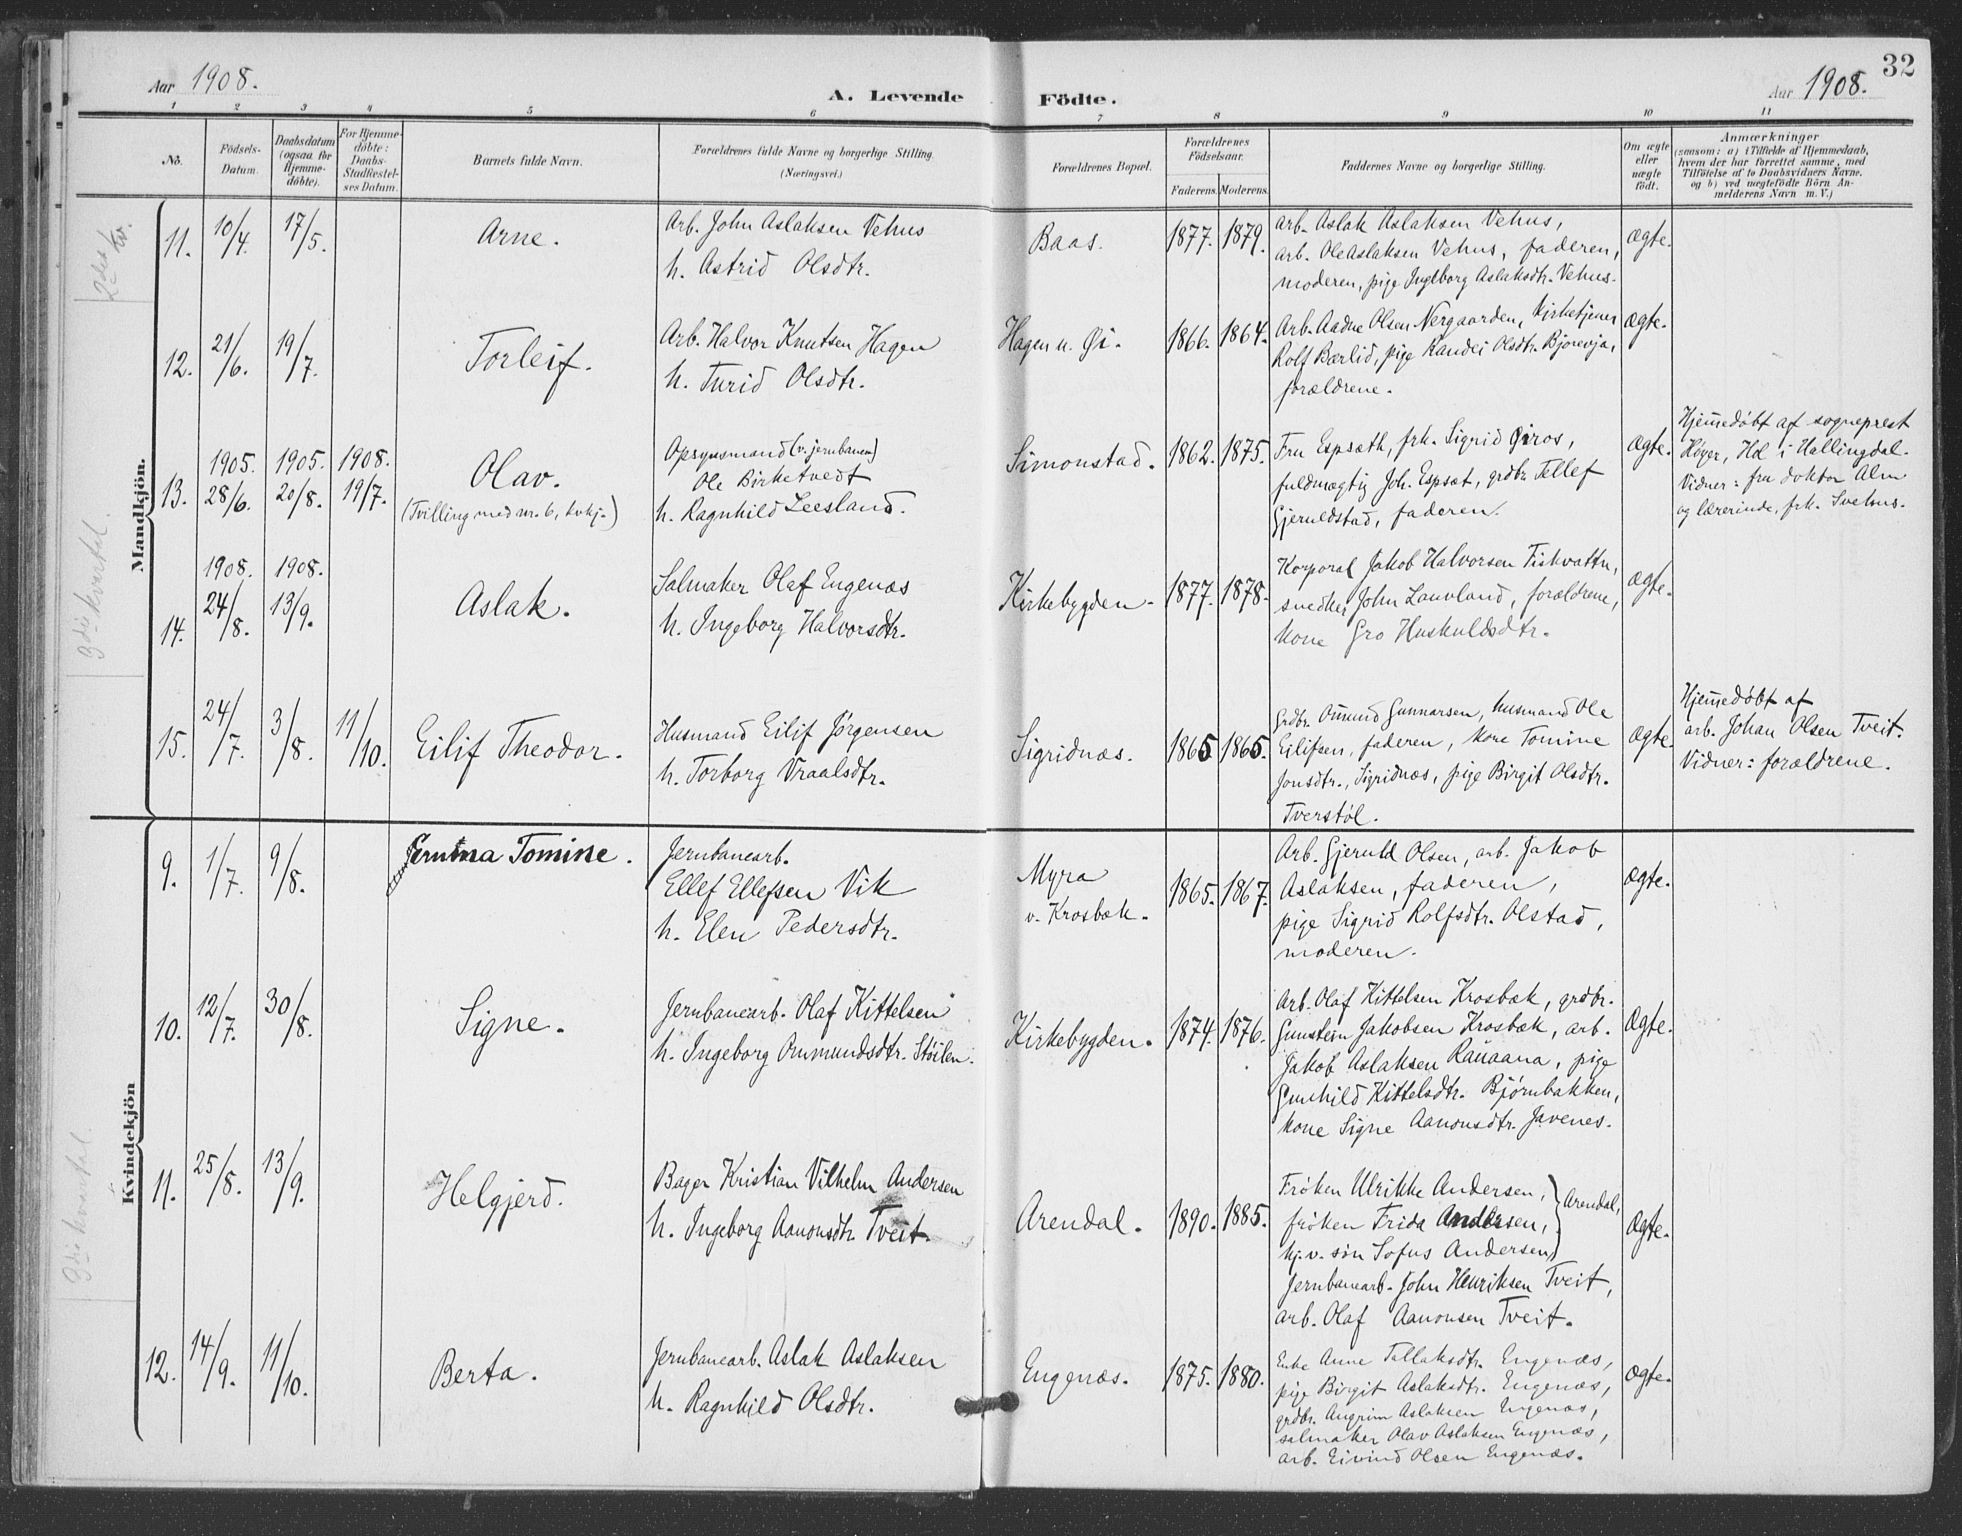 Aar 1908.
A. Levende Födte.
Aar 1908.
32
1 2 3 4 5 6 7 8 9 10 11
No.
Födsels-Datum.
Daabsdatum (ogsaa for Hjemmedöbte).
For Hjemmedöbte: Daabs-Stadfæstelses Datum.
Barnets fulde Navn.
Forældrenes fulde Navne og borgerlige Stilling.
(Næringsvei.)
Forældrenes Bopæl.
Forældrenes Födselsaar.
Faderens. Moderens.
Faddernes Navne og borgerlige Stilling.
Om ægte eller uægte födt.
Anmærkninger
(saasom: a) i Tilfælde af Hjemmedaab, hvem der har forrettet samme, med Tilföielse af to Daabsvidners Navne, og b) ved uægtefödte Börn Anmelderens Navn m. V.)
2det kv.
Mandkjön.
11. 10/4. 17/5. Arne.
Arb. John Aslaksen Vehus
h. Astrid Olsdtr.
Baas. 1877. 1879.
Arb. Aslak Aslaksen Vehus,
arb. Ole Aslaksen Vehus, faderen,
moderen, pige Ingeborg Aslaksdtr. Vehus.
ægte.
12. 21/6. 19/7. Torleif.
Arb. Halvor Knutsen Hagen
h. Turid Olsdtr.
Hagen u. Øi. 1866. 1864.
Arb. Aadne Olsen Nergaarden, Kirketjener
Rolf Bærlid, pige Randei Olsdtr. Bjorevja,
forældrene.
ægte.
3die kvartal.
13. 1905. 28/6. 1905. 20/8. 1908. 19/7.
Olav.
(Tvilling med nr. 6, kvkj.)
Opsynsmand (v. jernbanen)
Ole Birketvedt
h. Ragnhild Leesland.
Simonstad. 1862. 1875.
Fru Espseth, frk. Sigrid Øiros,
fuldmægtig Joh. Espset, grdbr. Tellef
Gjeruldstad, faderen.
ægte.
Hjemmedøbt af sogneprest
Høyer, Hol i Hallingdal.
Vidner: fru doktor Alm
og lærerinde, frk. Svehus.
14. 1908. 24/8. 1908. 13/9. Aslak.
Salmaker Olaf Engenæs
h. Ingeborg Halvorsdtr.
Kirkebygden. 1877. 1878.
Korporal Jakob Halvorsen Fiskvattn,
snedker John Lauvland, forældrene,
kone Gro Huskuldsdtr.
ægte.
15. 24/7. 3/8. 11/10. Eilif Theodor.
Husmand Eilif Jørgensen
h. Torborg Vraalsdtr.
Sigridnæs. 1865 1865.
Grdbr. Omund Gunnarsen, husmand Ole
Eilifsen, faderen, kone Tomine
Jonsdtr., Sigridnæs, pige Birgit Olsdtr.
Tverstøl.
ægte.
Hjemmedøbt af
arb. Johan Olsen Tveit.
Vidner: forældrene.
Kvindekjön
9. 1/7. 9/8. Tomine.
Jernbanearb.
Ellef Ellefsen Vik
h. Elen Pedersdtr.
Myra
v. Krosbæk.
1865. 1867.
Arb. Gjeruld Olsen, arb. Jakob
Aslaksen, faderen,
pige Sigrid Rolfsdtr. Olstad,
moderen.
ægte.
10. 12/7. 30/8. Signe.
Jernbanearb. Olaf Kittelsen
h. Ingeborg Ommundsdtr. Støilen.
Kirkebygden. 1874. 1876.
Arb. Olaf Kittelsen Krosbæk, grdbr.
Gunstein Jakobsen Krosbæk, arb.
Jakob Aslaksen Rauaana, pige
Gunhild Kittelsdtr. Bjørnbakken,
kone Signe Aanonsdtr. Javenes.
Ægte.
3die kvartal.
11. 25/8. 13/9. Helgjerd.
Bager Kristian Vilhelm Andersen
h. Ingeborg Aanonsdtr. Tveit.
Arendal. 1890. 1885.
Frøken Ulrikke Andersen,
frøken Frida Andersen,
hj.v. søn Sofus Andersen,
Arendal,
Jernbanearb. John Henriksen Tveit,
arb. Olaf Aanonsen Tveit.
Ægte.
12. 14/9. 11/10. Berta.
Jernbanearb. Aslak Aslaksen
h. Ragnhild Olsdtr.
Engenæs. 1875. 1880.
Enke Anne Tallaksdtr. Engenæs,
pige Birgit Aslaksdtr. Engenæs,
grdbr. Angrim Aslaksen Engenæs,
salmaker Olav Aslaksen Engenæs,
arb. Eivind Olsen Engenæs.
Ægte.